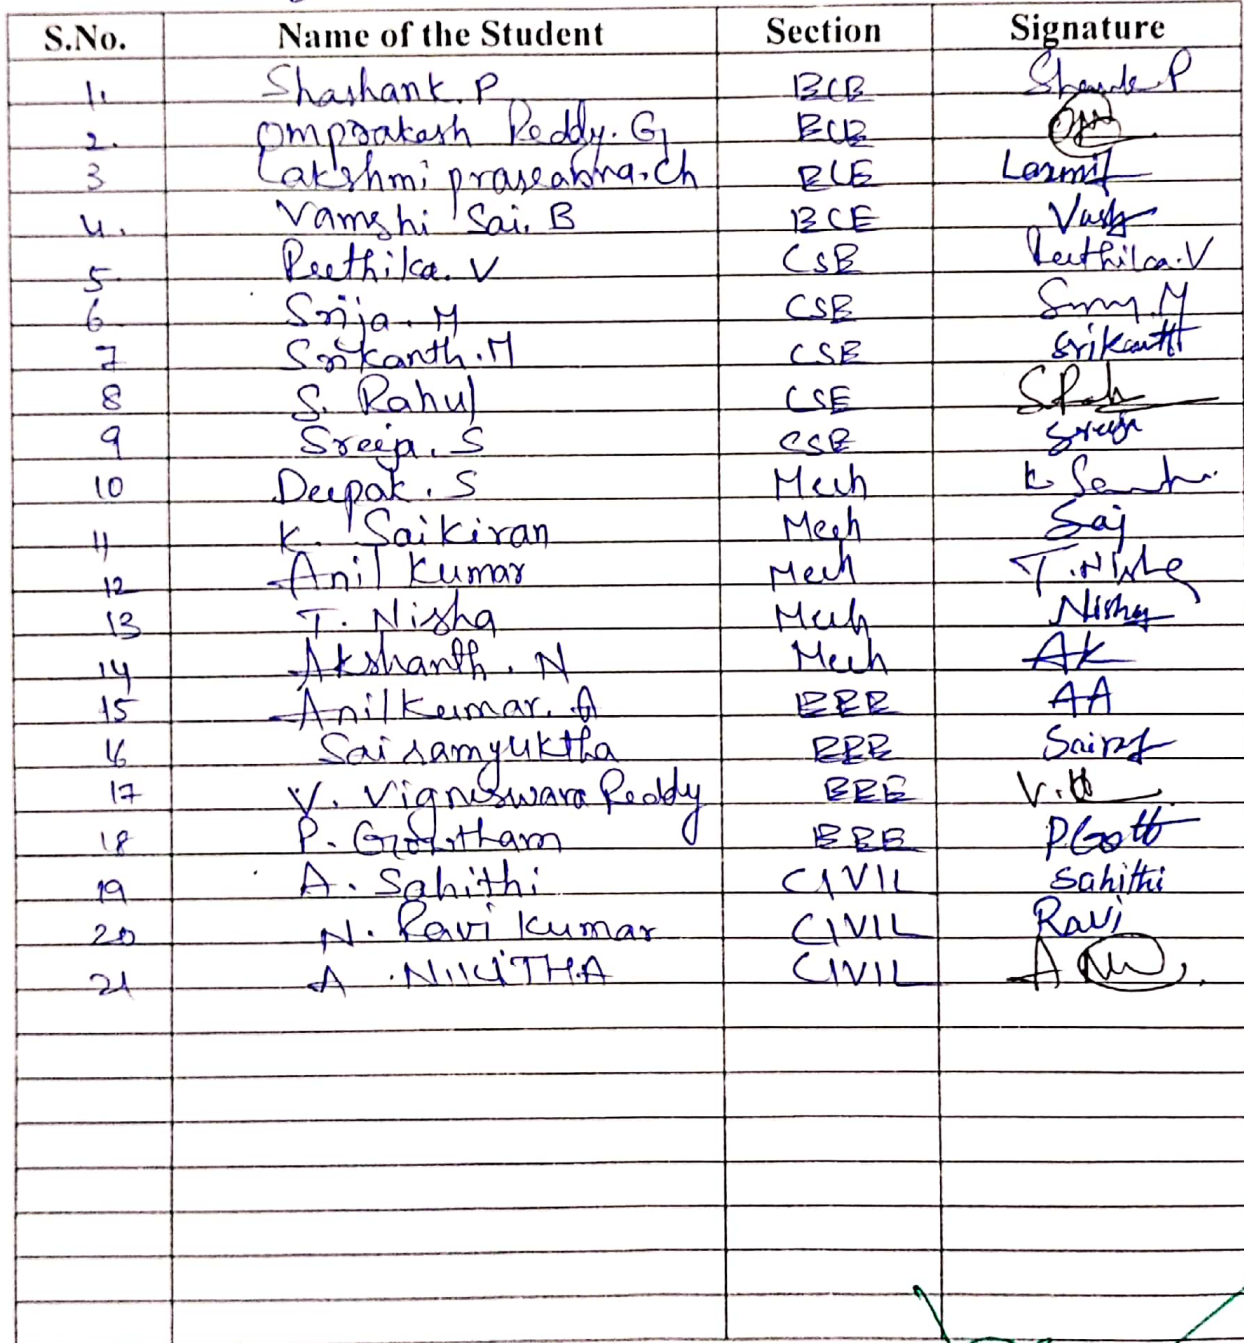 S.No. Name of the Student Section Signature
1. Shashank. P ECE Shashank P
2. Omprakash Reddy. G ECE
3 Lakshmi praseabna. ch ECE Laxmi
4. Vamshi Sai. B ECE Vamshi
5 Reethika. V CSE Reethika. V
6 Srija. M CSE M
7 Srikanth. M CSE Srikanth
8 S. Rahul CSE
9 Sreeja. S CSE Sreeja
10 Deepak. S Mech K
11 K. Saikiran Mech Sai
12 Anil Kumar Mech T. Nisha
13 T. Nisha Mech Nisha
14 Akshanth. N Mech AK
15 Anilkumar. A EEE AA
16 Sai samyuktha EEE
17 V. Vigneswara Reddy EEE V.
18 P. Gowtham EEE
19 A. Sahithi CIVIL Sahithi
20 N. Ravi Kumar CIVIL Ravi
21 A. NIKITHA CIVIL A